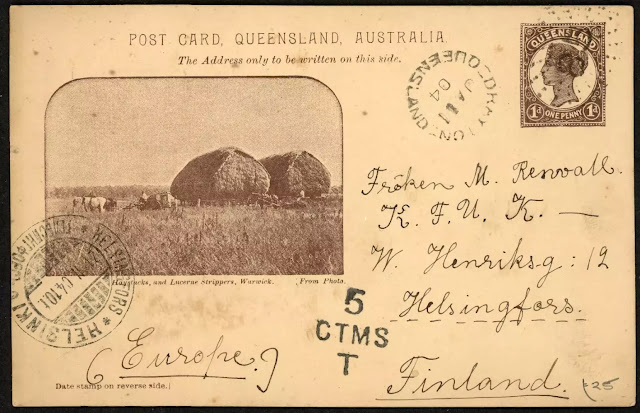 POST CARD, QUEENSLAND, AUSTRALIA.
The Address only to be written on this side.
QUEENSLAND
1d ONE PENNY 1d
DRAYTON
JA 11
04
QUEENSLAND
Haystacks, and Lucerne Strippers, Warwick.
From Photo.
Fröken M. Renvall.
K. F. U. K. —
W. Henriksg: 12
Helsingfors.
Finland.
(Europe.)
5
CTMS
T
HELSINGFORS
HELSINKI
Date stamp on reverse side.
25